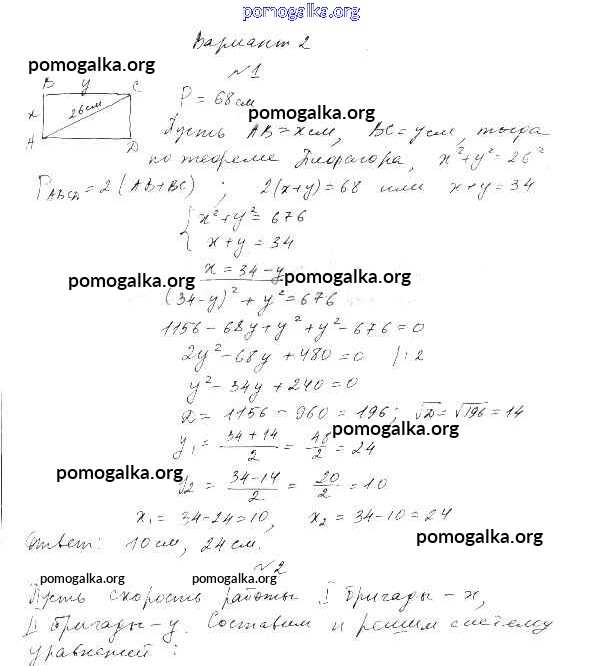 pomogalka.org
Вариант 2
pomogalka.org
№1
B y C
x 26 см
A D
P = 68 см
pomogalka.org
Пусть AB = x см, BC = y см, тогда
по теореме Пифагора, x² + y² = 26².
P_ABCD = 2(AB+BC) ; 2(x+y) = 68 или x+y = 34
{ x² + y² = 676
x + y = 34
x = 34 - y
pomogalka.org pomogalka.org
(34-y)² + y² = 676
1156 - 68y + y² + y² - 676 = 0
2y² - 68y + 480 = 0 /:2
y² - 34y + 240 = 0
D = 1156 - 960 = 196; √D = √196 = 14
y₁ = (34+14)/2 = 48/2 = 24
pomogalka.org
pomogalka.org
y₂ = (34-14)/2 = 20/2 = 10
x₁ = 34-24 = 10, x₂ = 34-10 = 24
pomogalka.org
Ответ: 10 см, 24 см.
№2
pomogalka.org pomogalka.org
Пусть скорость работы I бригады - x,
II бригады - y. Составим и решим систему
уравнений: